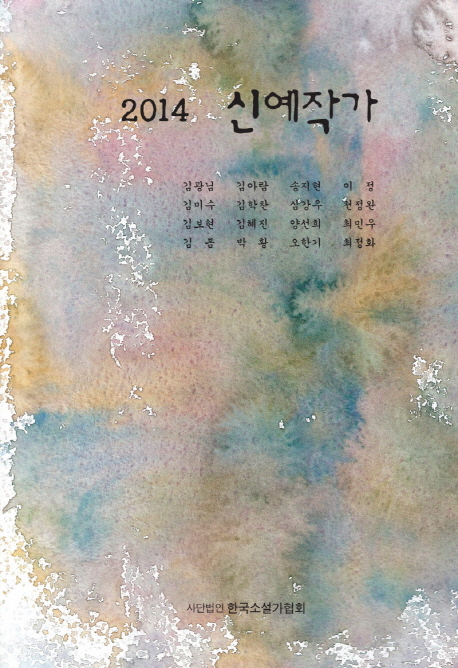 2014 신예작가
김광님 김아람 송지현 이 정
김미슬 김학찬 심강우 전정완
김보현 김혜진 양선희 최민우
김 봄 박 황 오한기 최정화
사단법인 한국소설가협회